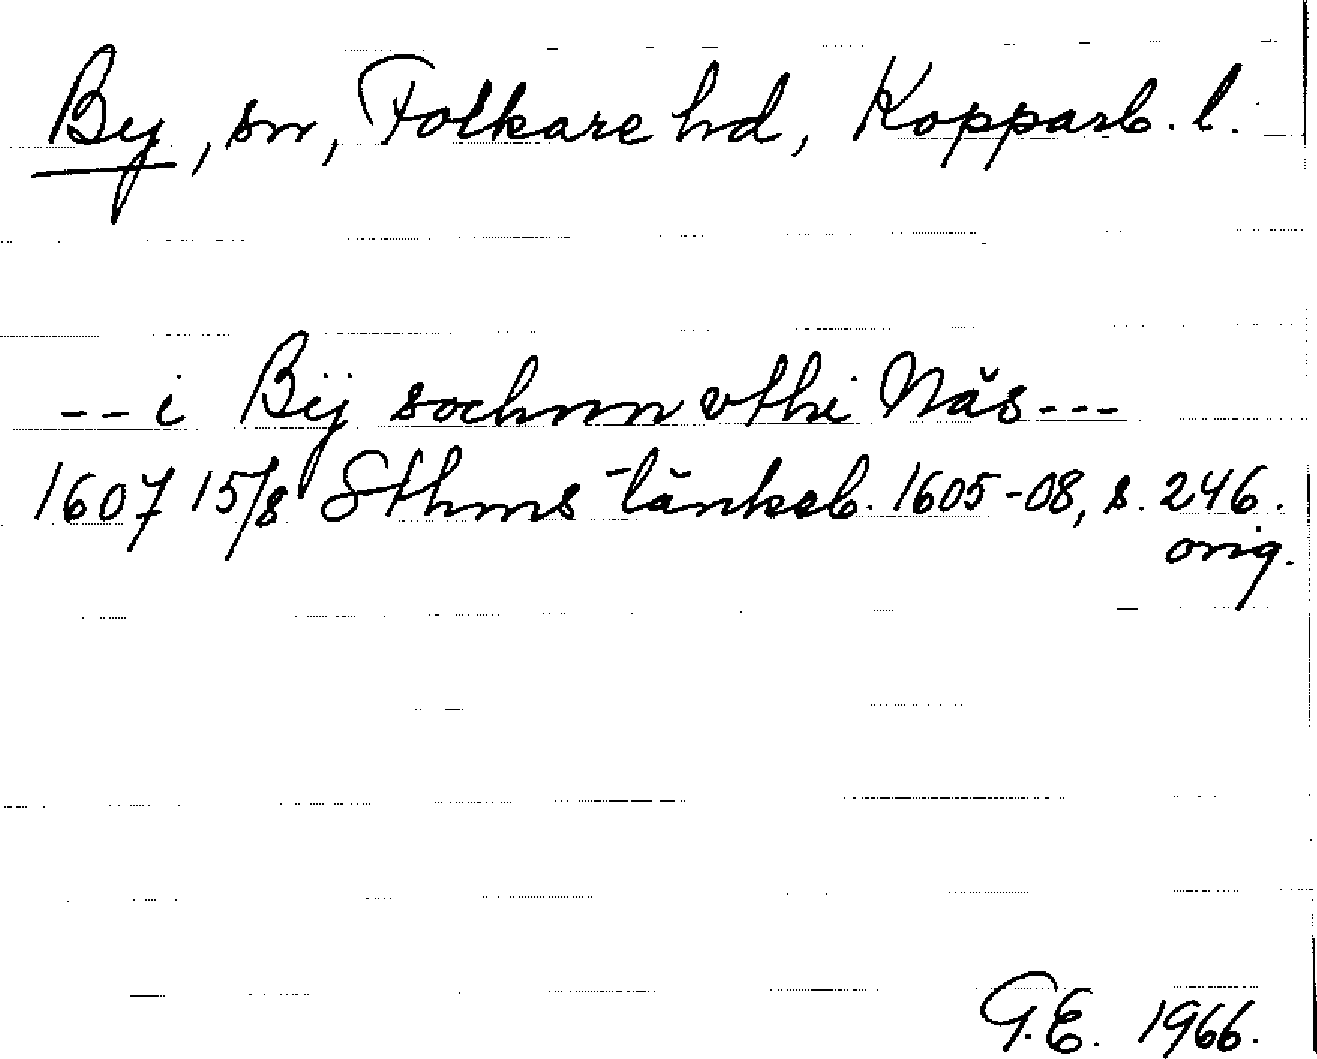 By, sn, Folkare hd, Kopparb. l.
-- i Bÿ sochnn vthi Näs ---
1607 15/8 Sthms tänkeb. 1605-08, s. 246.
orig.
G.E. 1966.